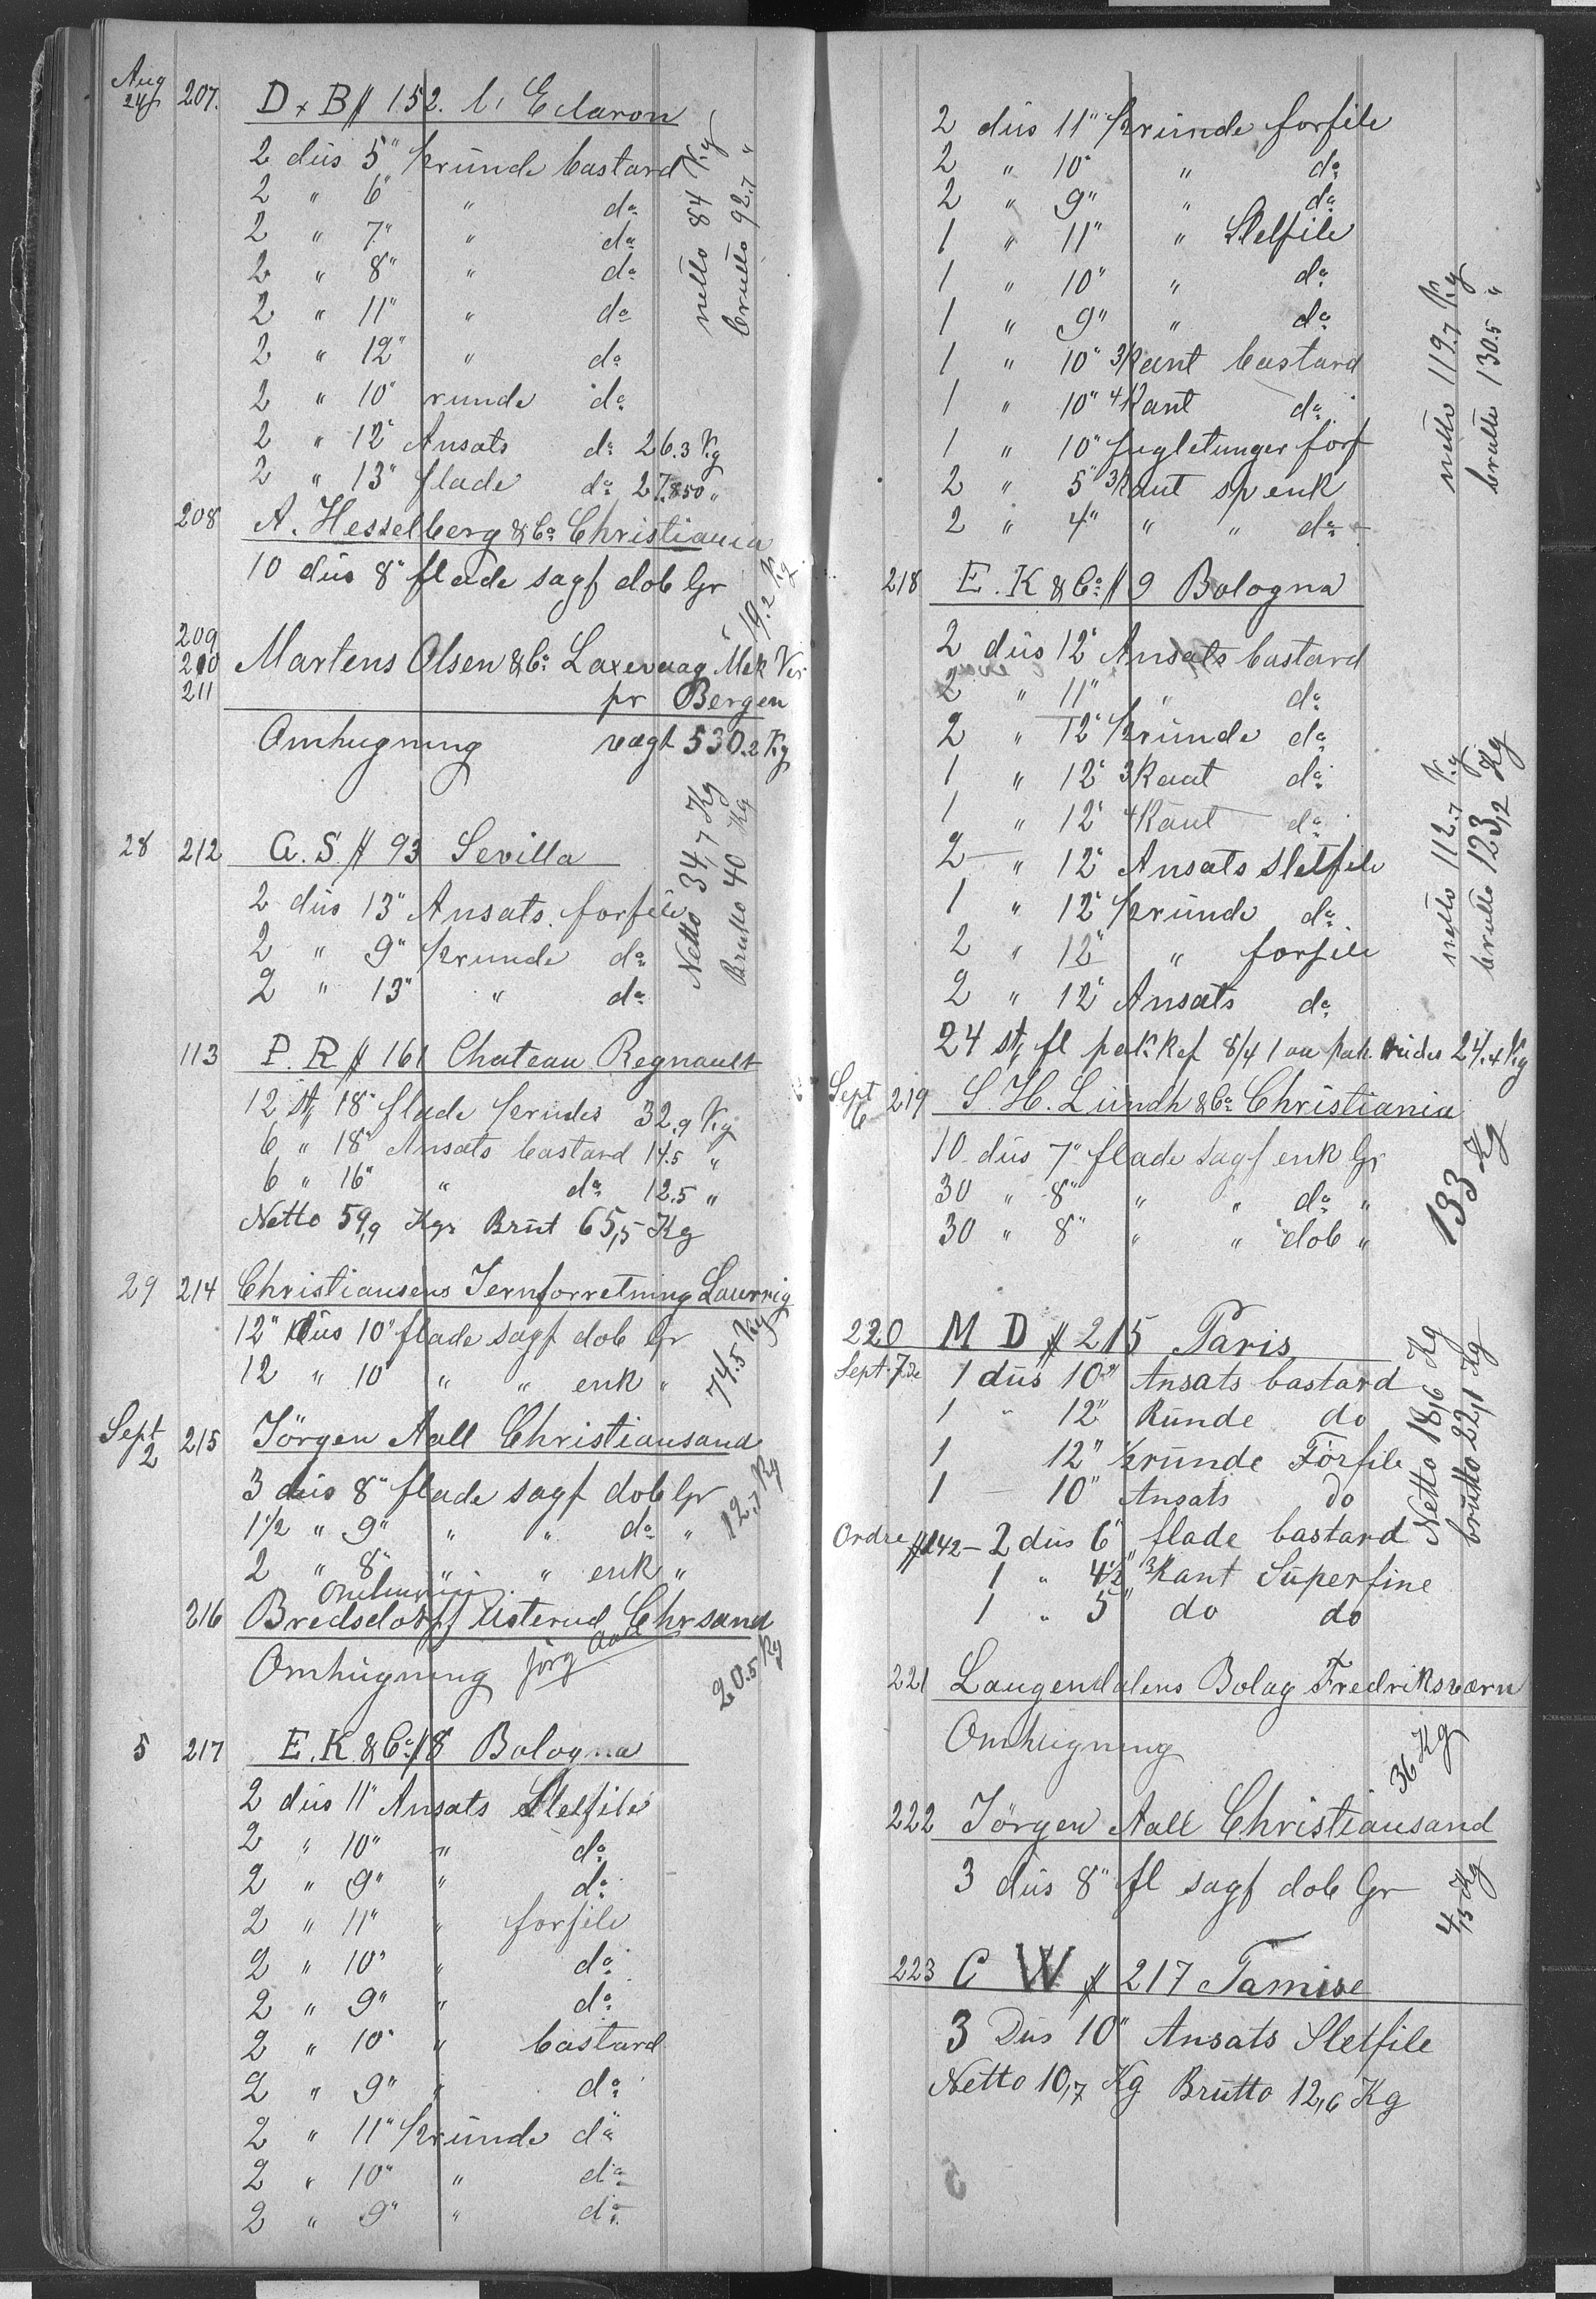 Aug 24 207. D x B # 152. l, Eclaron
2 düs 5" ½ründe bastard
2 " 6" " do
2 " 7" " do
2 " 8" " do
2 " 11" " do
2 " 12" " do
netto 84 Kg
brutto 92.7 "
2 " 10" runde do
2 " 12" Ansats do 26.3 Kg
2 " 13" flade do 27.850 "
208 A. Hesselberg & Co Christiania
10 düs 8" flade sagf dob Gr
19.2 Kg
209
210 Martens Olsen & Co. Laxevaag Mek Ver
211 pr Bergen
Omhugning vægt 530.2 Kg
28 212 A. S. # 93 Sevilla
2 düs 13" Ansats forfile
2 " 9" ½runde do
2 " 13" " do
Netto 34,7 Kg
Brutto 40 Kg
113 P. R # 161 Chateau Regnault
12 st, 18" flade ½rudes 32.9 Kg
6 " 18" Ansats bastard 14.5 "
6 " 16" " do 12.5 "
Netto 59,9 Kgr Brüt 65,5 Kg
29 214 Christiansens Jernforretning Laurvig
12" düs 10" flade sagf dob Gr
12 " 10" " " enk "
74.5 Kg
Sept 2 215 Jörgen Aall Christiansand
3 düs 8" flade sagf dob Gr
1½ " 9" " " do "
2 " 8" " " enk "
12.7 Kg
216 Bredsdorff Usterud Chrsand
Omhügning jörg Aall
20.5 Kg
5 217 E. K. & Co # 8 Bologna
2 düs 11" Ansats Sletfile
2 " 10" " do
2 " 9" " do
2 " 11" " forfile
2 " 10" " do
2 " 9" " do
2 " 10" " bastard
2 " 9" " do
2 " 11" ½ründe do
2 " 10" " do
2 " 9" " do
2 düs 11" ½ründe forfile
2 " 10" " do
2 " 9" " do
1 " 11" " Sletfile
1 " 10" " do
1 " 9" " do
1 " 10" 3Kant bastard
1 " 10" 4Kant do
1 " 10" fugletunger forf
2 " 5" 3Kant sp enk
2 " 4" " " do
netto 119.7 Kg
brutto 130.5 "
218 E. K & Co # 9 Bologna
2 düs 12" Ansats bastard
2 " 11" " do
2 " 12" ½ründe do
1 " 12" 3Kant do
1 " 12" 4Kant do
2 " 12" Ansats Sletfile
1 " 12" ½ründe do
2 " 12" " forfile
2 " 12" Ansats do
netto 112.7 Kg
brutto 123,2 Kg
24 st, fl pak Raf 8/4 1 au pak rudes 24.4 Kg
Sept 6 219 S. H. Lündh & Co Christiania
10 düs 7" flade sagf enk Gr
30 " 8" " " do "
30 " 8" " " dob "
133 Kg
220 M D # 215 Paris
Sept. 7de 1 düs 10" Ansats bastard
1 " 12" Ründe do
1 12" ½ründe Forfile
1 — 10" Ansats do
Ordre # 142 — 2 düs 6" flade bastard
1 " 4½" 3Kant Süperfine
1 " 5" do do
Netto 18,6 Kg
brutto 22,1 Kg
221 Laugendalens Bolag Fredriksværn
Omhügning
36 Kg
222 Jörgen Aall Christiansand
3 düs 8" fl sagf dob Gr
4,15 Kg
223 C W # 217 Tamise
3 Düs 10" Ansats Sletfile
Netto 10,7 Kg Brütto 12,6 Kg